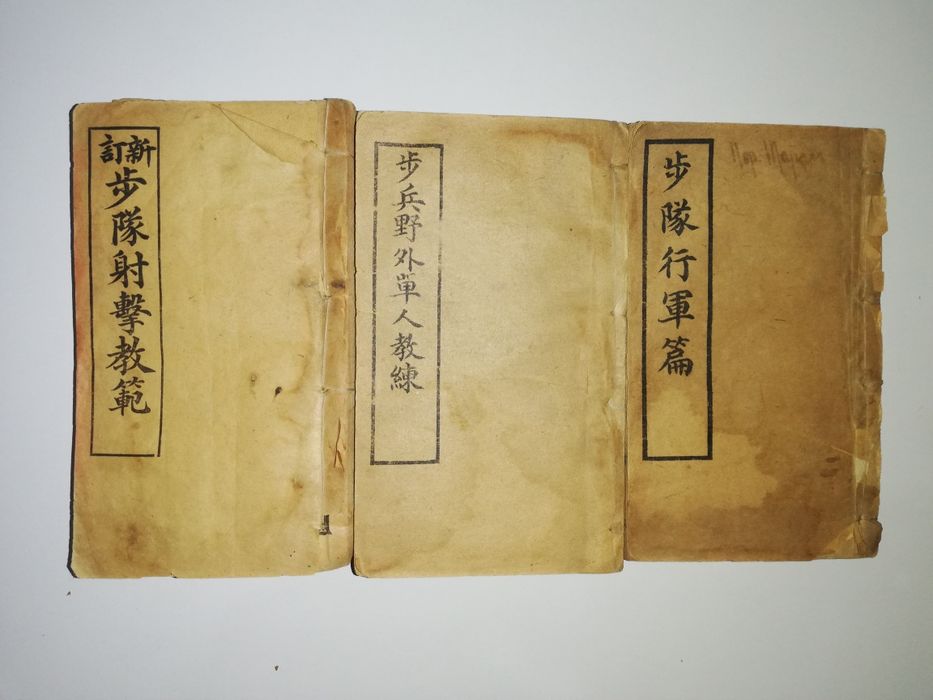 新訂
步隊射擊教範
步兵野外單人教練
步隊行軍篇